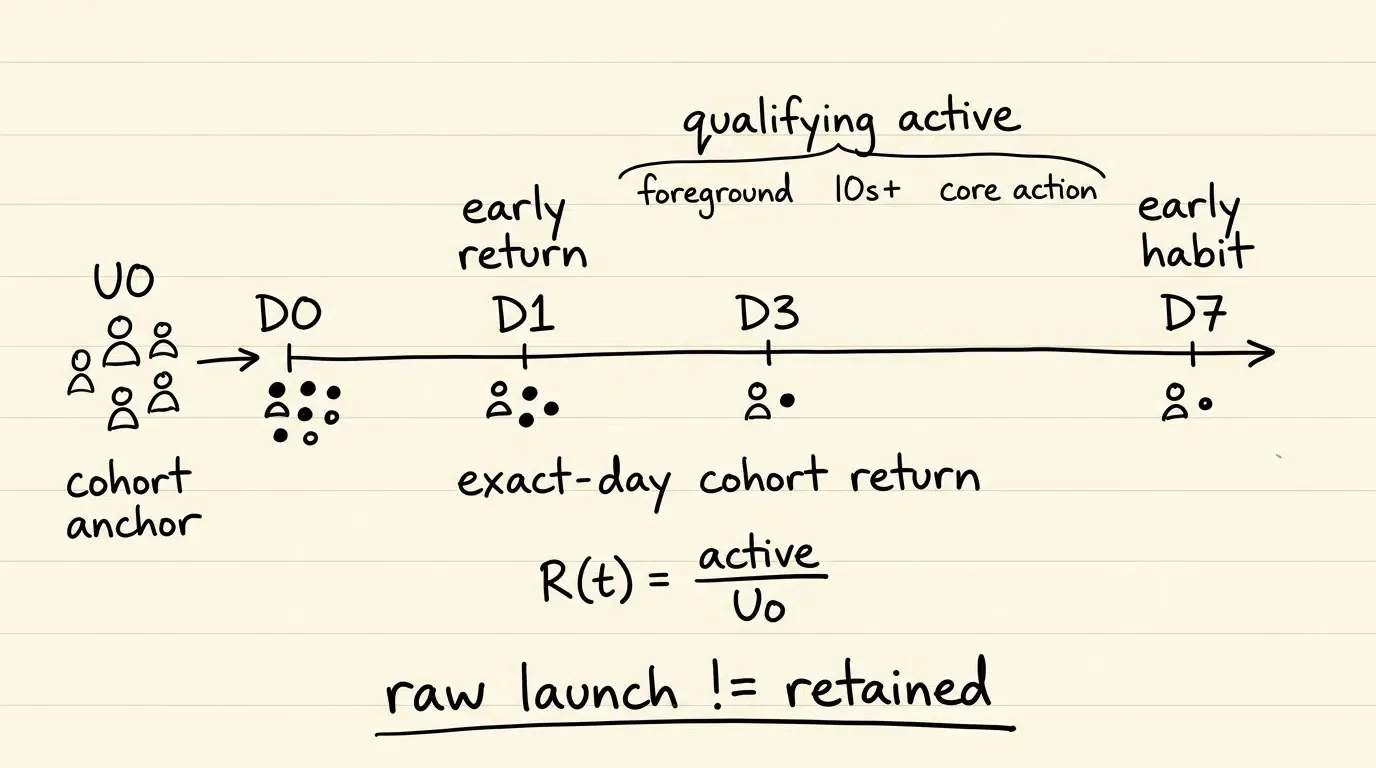 qualifying active
foreground 10s+ core action
early
return
early
habit
U0
D0 D1 D3 D7
cohort
anchor
exact-day cohort return
R(t) = active
U0
raw launch != retained